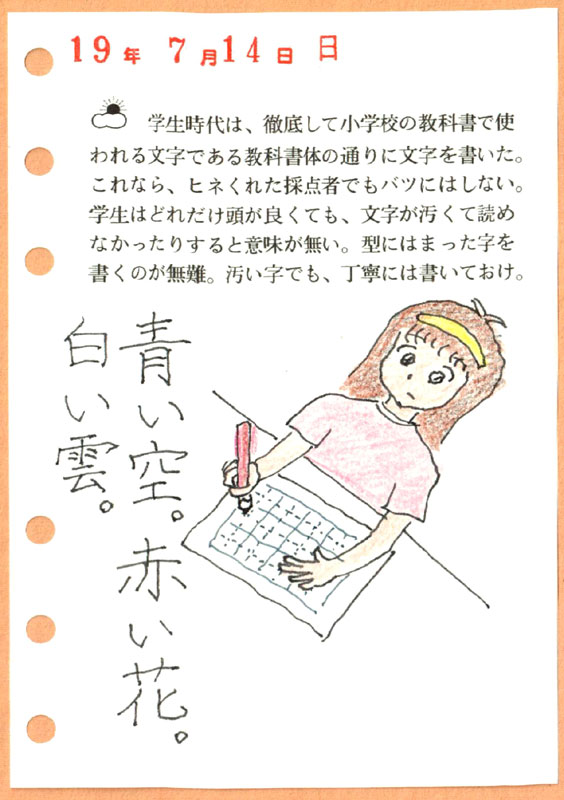 19年 7月14日 日
学生時代は、徹底して小学校の教科書で使
われる文字である教科書体の通りに文字を書いた。
これなら、ヒネくれた採点者でもバツにはしない。
学生はどれだけ頭が良くても、文字が汚くて読め
なかったりすると意味が無い。型にはまった字を
書くのが無難。汚い字でも、丁寧には書いておけ。
青い空。赤い花。
白い雲。